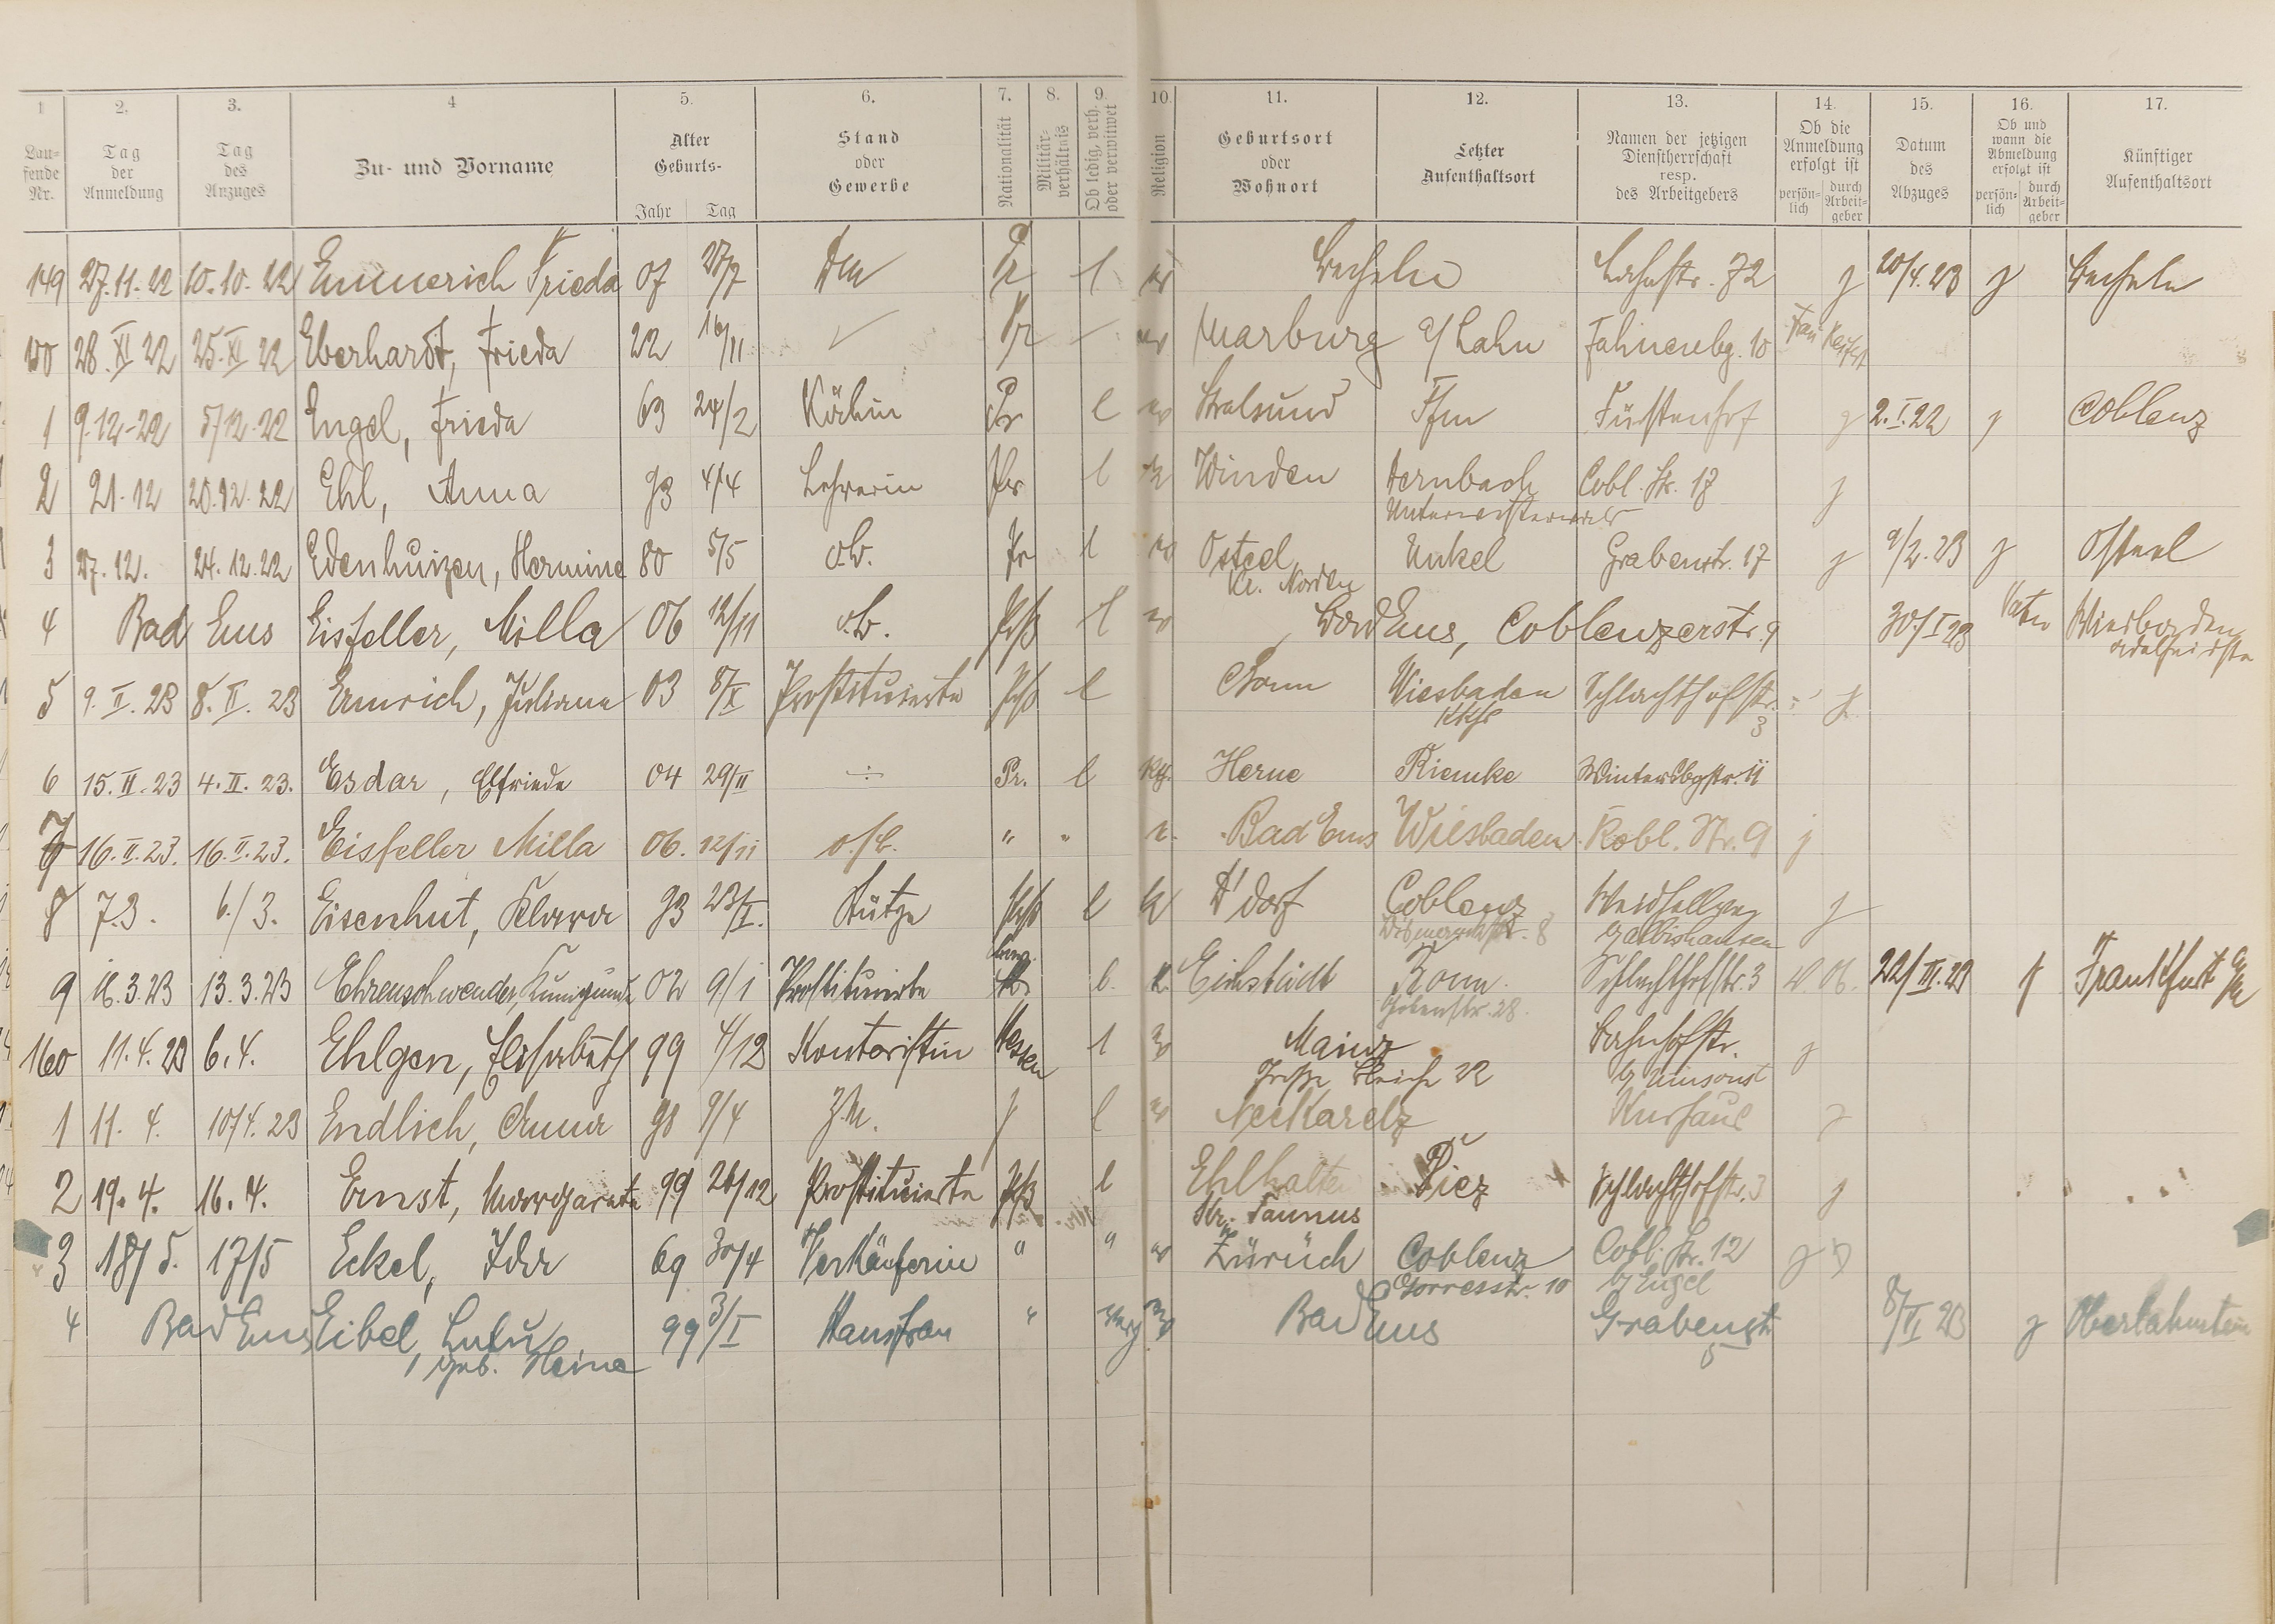 1 2. 3. 4 5. 6. 7. 8. 9. 10. 11. 12. 13. 14. 15. 16. 17.
Lau-
fende
Nr.
Tag
der
Anmeldung
Tag
des
Anzuges
Zu- und Vorname
Alter
Geburts-
Jahr Tag
Stand
oder
Gewerbe
Nationalität
Militär-
verhältnis
Ob ledig, verh.
oder verwitwet
Religion
Geburtsort
oder
Wohnort
Letzter
Aufenthaltsort
Namen der jetzigen
Dienstherrschaft
resp.
des Arbeitgebers
Ob die
Anmeldung
erfolgt ist
persön-
lich
durch
Arbeit-
geber
Datum
des
Abzuges
Ob und
wann die
Abmeldung
erfolgt ist
persön-
lich
durch
Arbeit-
geber
Künftiger
Aufenthaltsort
149 27.11.22 10.10.22 Emmerich Frieda 07 27/7 Dm Pr l ev Becheln Lahnstr. 72 j 20/4.23 j Becheln
150 28.XI 22 25.XI 22 Eberhardt, Frieda 22 16/11 Pr ev Marburg a/Lahn Fahnenbg. 10
1 9.12.22 5/12.22 Engel, Frieda 63 24/2 Köchin Pr l ev Stralsund Ffm Fürstenhof j 2.I.22 j Coblenz
2 21.12 20.12.22 Ehl, Anna 93 4/4 Lehrerin Pr l Winden Dernbach Cobl. Str. 17 j
Unterwesterwald
3 27.12. 24.12.22 Edenhuizen, Hermine 80 5/5 o.B. Pr l ev Osteel Unkel Grabenstr. 17 j 9/2.23 j Osteel
Kr. Norden
4 Bad Ems Eisfeller, Milla 06 12/11 o.B. Prß l ev Bad Ems, Coblenzerstr. 9 30/I 23 Vater Wiesbaden
5 9.II.23 8.II.23 Emrich, Juliane 03 8/X Prostituierte Prß l Bonn Wiesbaden Schlachthofstr. j
3
6 15.II.23 4.II.23. Esdar, Elfriede 04 29/II Pr. l kth. Herne Riemke Wintersbgstr. 11
7 16.II.23. 16.II.23. Eisfeller Milla 06. 12/11 o.B. " " Bad Ems Wiesbaden Kobl. Str. 9 j
8 7.3. 6./3. Eisenhut, Klara 93 23/I. Stütze Prß l k D'dorf Coblenz j
9 16.3.23 13.3.23 Ehrenschwender, Kunigunde 02 9/1 Prostituierte l. k. Eichstädt Bonn. Schlachthofstr. 3 22/III.23 j Frankfurt a/M
160 11.4.23 6.4. Ehlgen, Elisabeth 99 4/12 Kontoristin Hessen l Mainz Bahnhofstr. j
Große Bleiche 22 b/ Umsonst
1 11.4. 10/4.23 Endlich, Anna 98 9/4 Z.M. l ev Neckarelz Kurhaus j
2 19.4. 16.4. Ernst, Margarete 99 26/12 Prostituierte Prß l Ehlhalten Diez Schlachthofstr. 3 j
Kr. Taunus
3 18/5. 17/5 Eckel, Ida 69 30/4 Verkäuferin " " ev Zürüch Coblenz Cobl. Str. 12 j
Görresstr. 10 b/ Engel
4 Bad Ems Eibel, Lulu 99 3/I Hausfrau " Bad Ems Grabenstr. 8/VI 23 j Oberlahnstein
geb. Heine 5